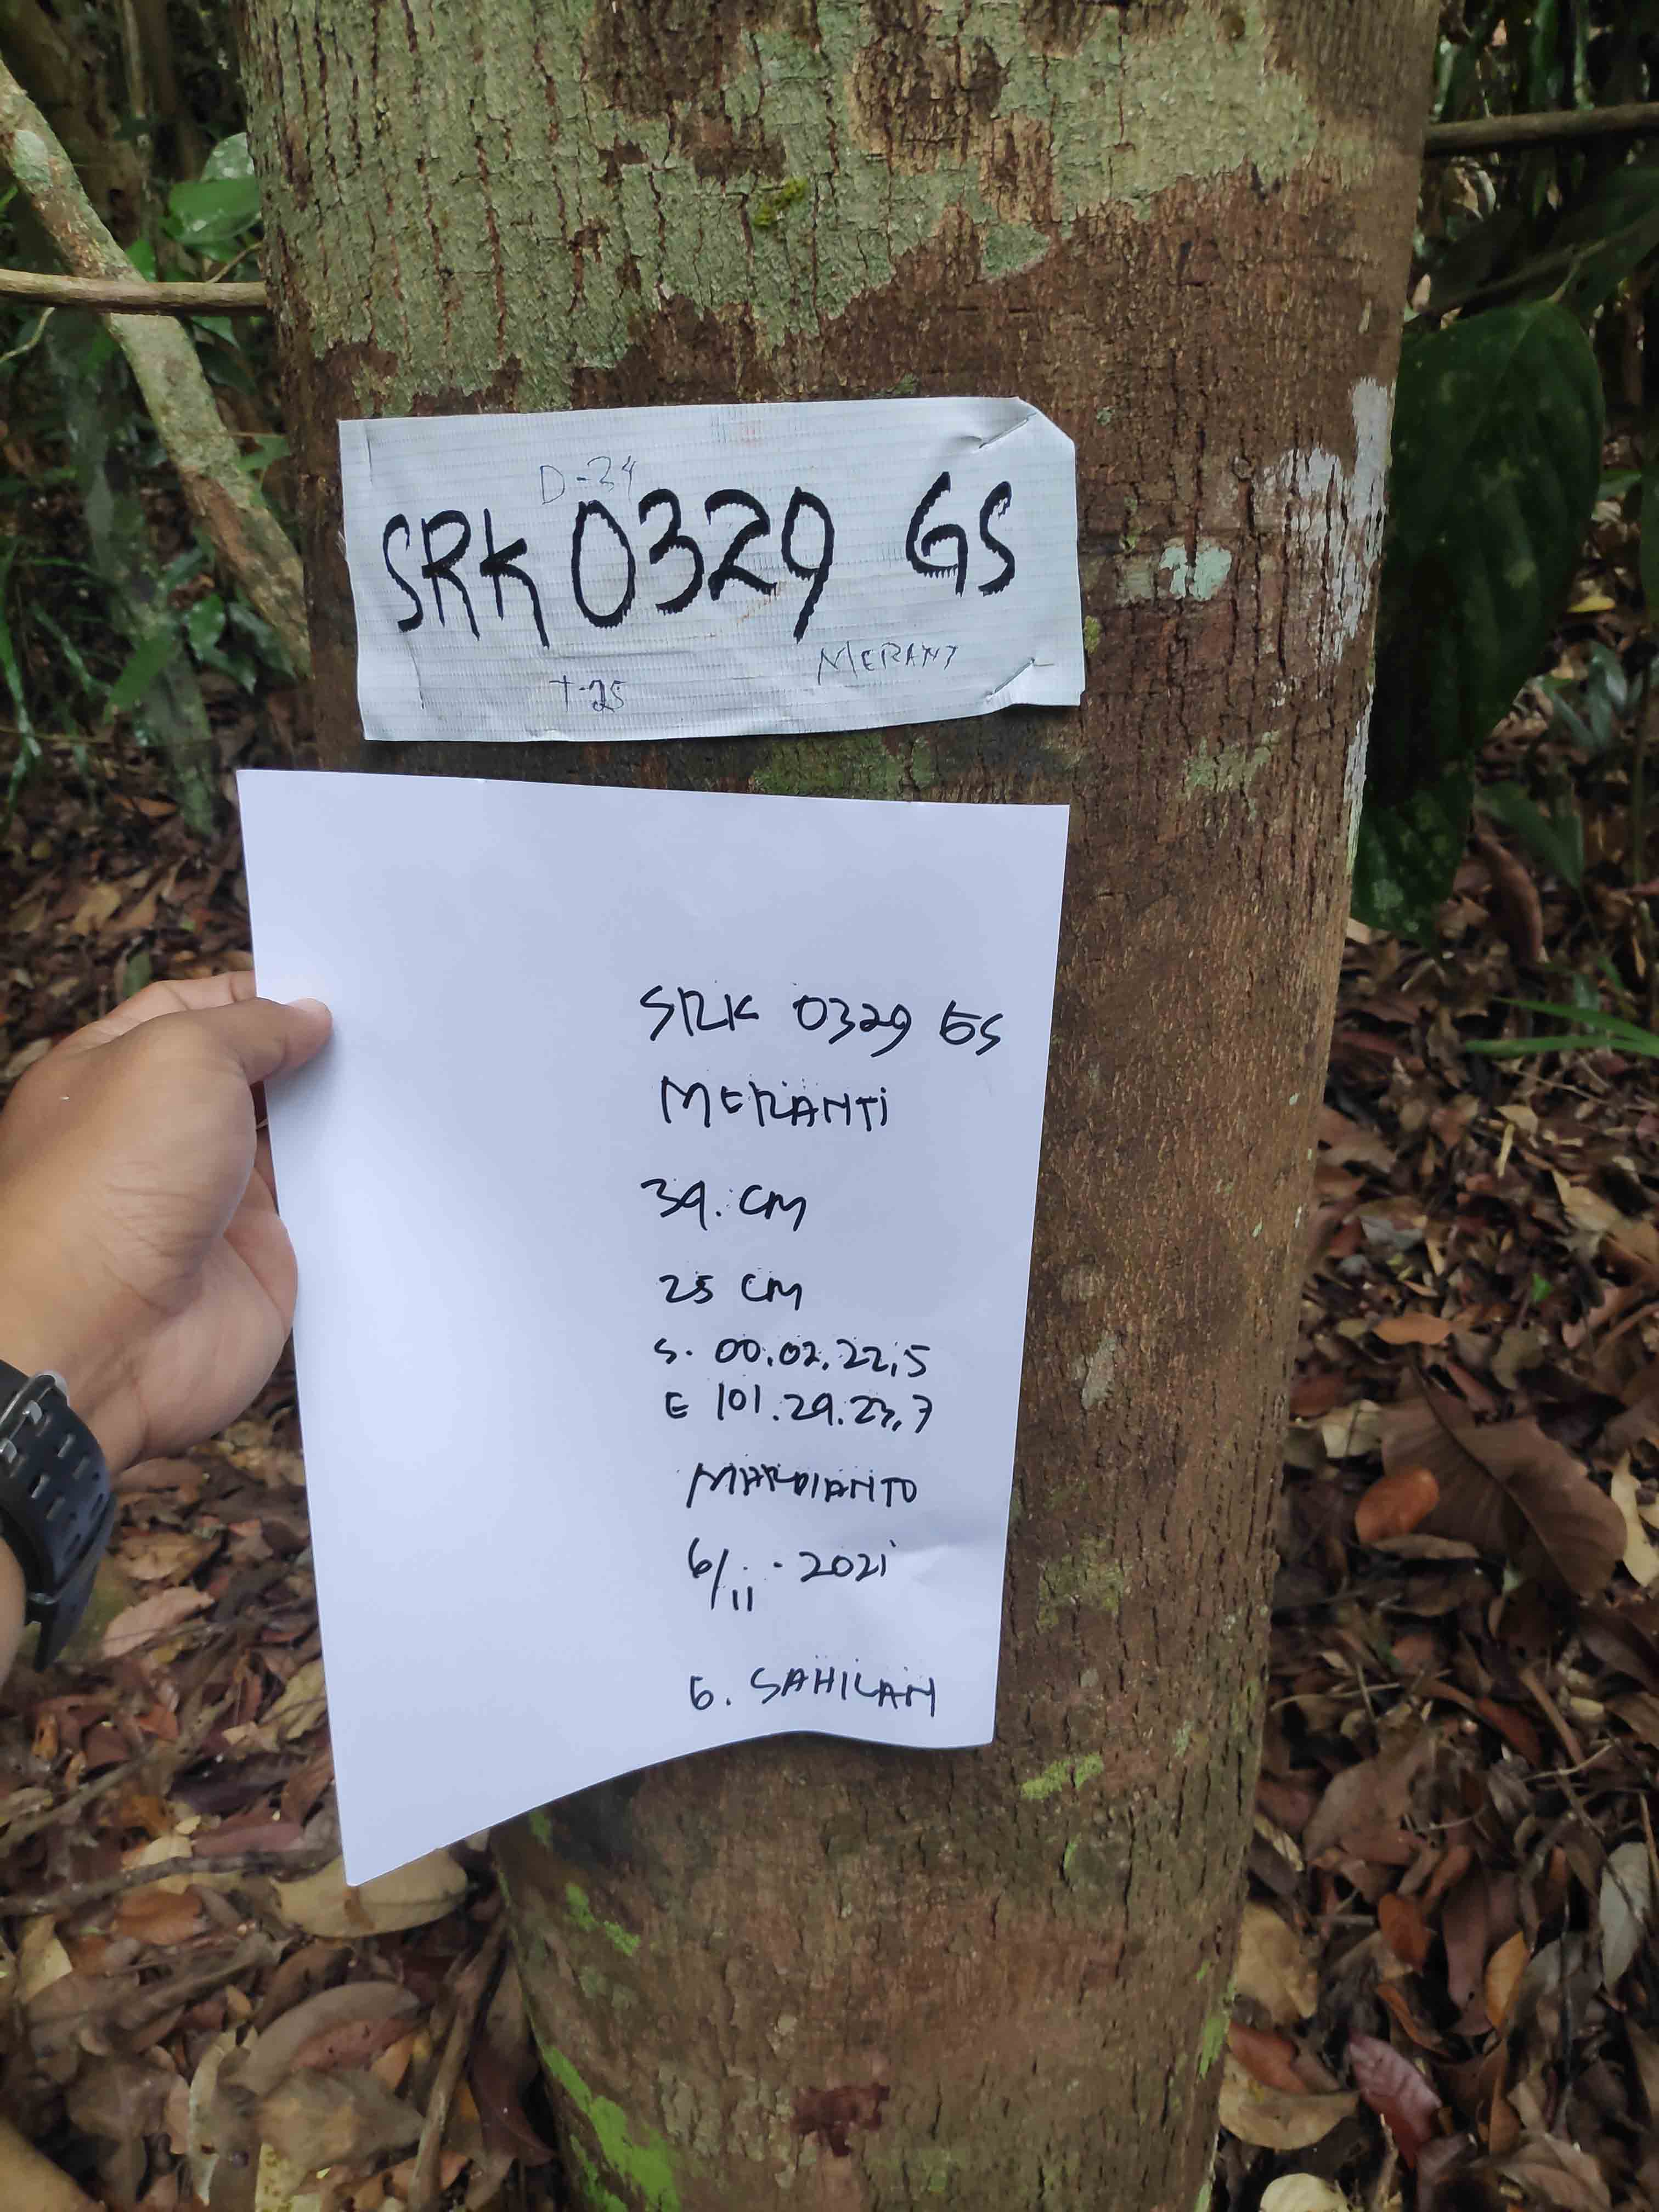 D-34
SRK 0329 GS
MERANT
T-25
SRK 0329 GS
MERANTi
39. CM
25 CM
S. 00.02.22,5
E 101.29.23,7
MARDIANTO
6/11 - 2021
G. SAHILAN